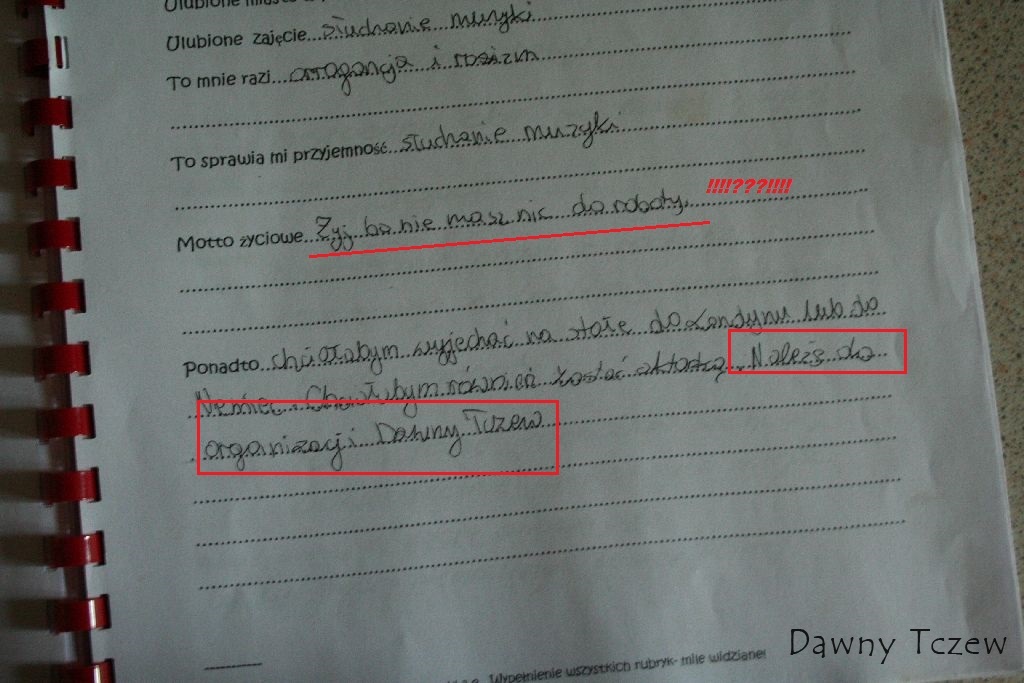 Ulubione
Ulubione zajęcie...słuchanie muzyki
To mnie razi...arrogancja i rasizm
To sprawia mi przyjemność...słuchanie muzyki
!!!!???!!!!
Motto życiowe...Żyj bo nie masz nic do roboty.
Ponadto chciałabym wyjechać na stałe do Londynu lub do
Niemiec. Chciałabym również zostać aktorką. Należę do
organizacji Dawny Tczew
Wypełnienie wszystkich rubryk- mile widziane!
Dawny Tczew